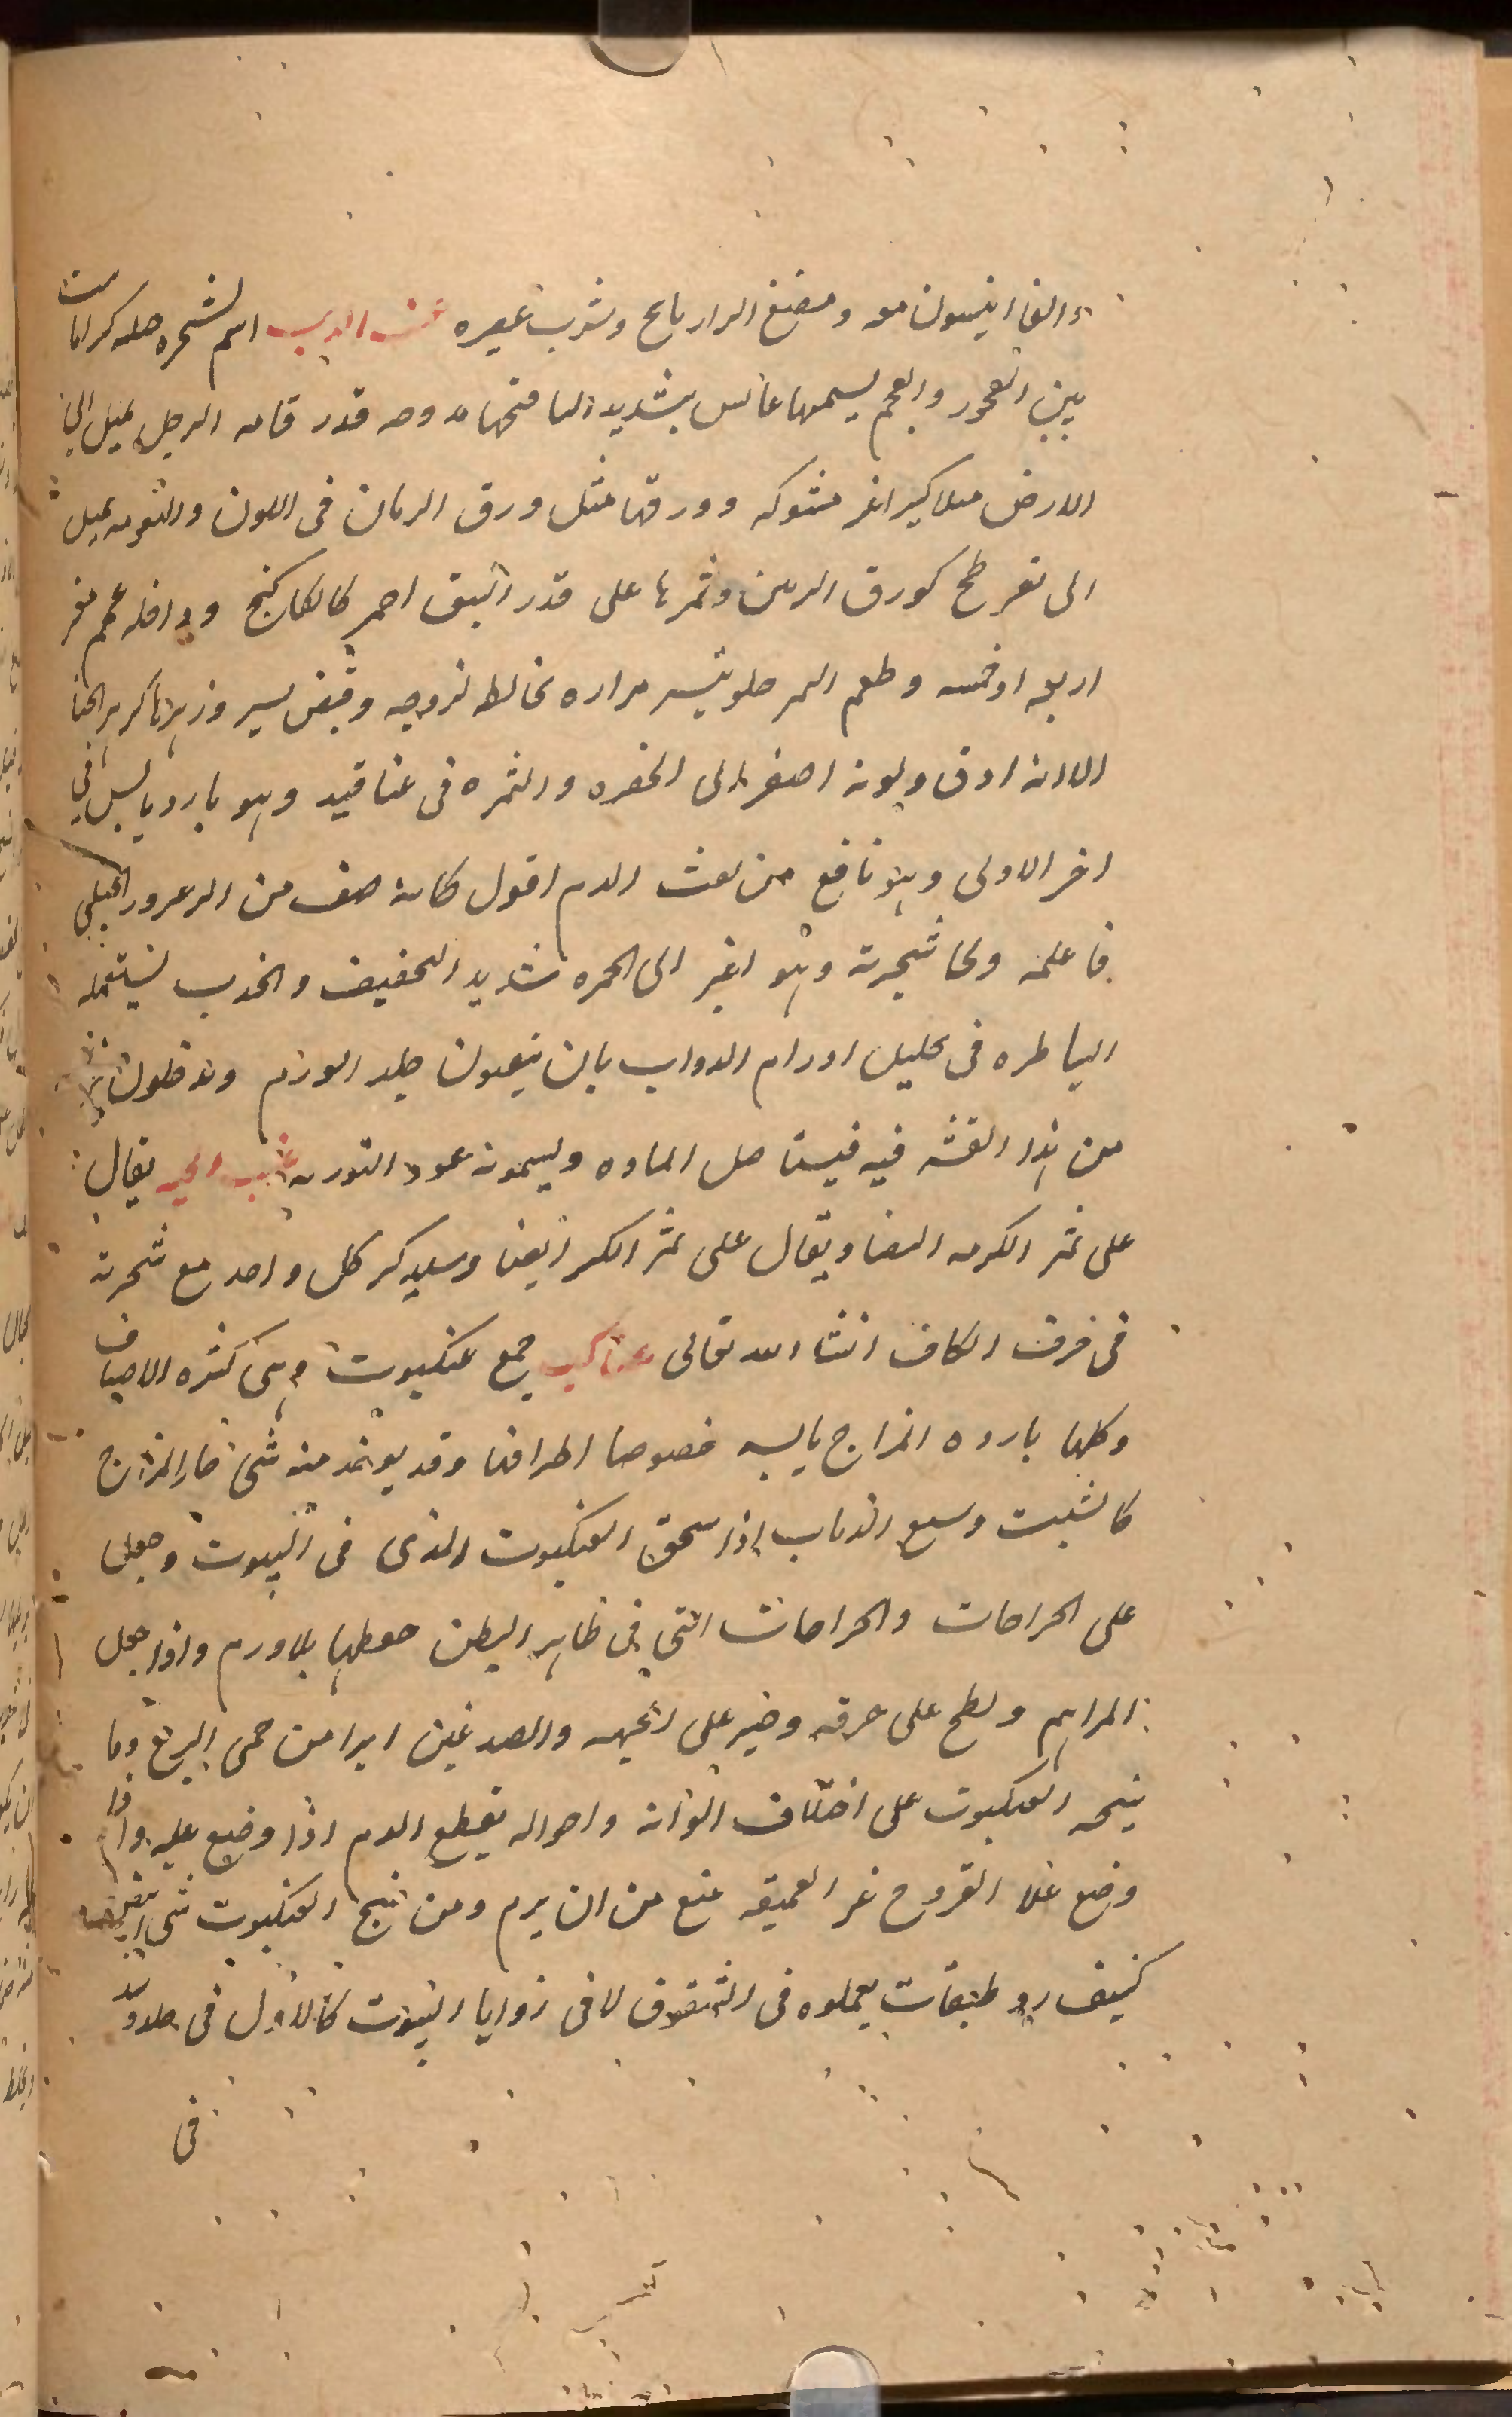 والفا انيسون معه ومضغ الرازيانج وشرب عصيره عنب الدب اسم لشجره جبليه
بين الصخور والعجم يسمها عانس بتشديد النا فتحها مدوحه قدر قامه الرجل يميل الى
الارض ميلا كبيرا غير مشوكه وورقها مثل ورق الرمان فى اللون والنعومه يميل
الى تفرطح كورق الرمان وثمرها على قدر النبق احمر كالكاكنج وداخله عجم نحو
اربعه او خمسه وطعم الثمر حلو بيسير مراره تخالطه لزوجه وقبض يسير وزهرها كزهر الحنا
الا انه ادق ولونه اصفر الى الخضره والثمره فى عناقيد وهو بارد يابس فى
اخر الاولى وهو نافع من نفث الدم اقول كانه صنف من الزعرور الجبلى
فاعلمه ولحا شجرته وهو اغبر الى الحمره شديد التجفيف والجذب يستعمله
البياطره فى تحليل اورام الدواب بان يثقبون جلد الورم ويدخلون
من هذا القشر فيه فيستاصل الماده ويسمونه عود النوريه عنب الحيه يقال
على ثمر الكرمه البيضا ويقال على ثمر الكبر ايضا وسيذكر كل واحد مع شجرته
فى حرف الكاف انشا الله تعالى عناكب جمع عنكبوت وهى كثيره الاصناف
وكلها بارده المزاج يابسه خصوصا اطرافها وقد يوجد منه شى حار المزاج
كالشبث وسبع الذباب اذا سحق العنكبوت الذى فى البيوت وجعل
على الجراحات والخراجات التى فى ظاهر البطن حفظها بلا ورم واذا جعل
المراهم ولطخ على خرقه وصير على الجبهه والصدغين ابرا من حمى الربع وما
ينسجه العنكبوت على اختلاف الوانه واحواله يقطع الدم اذا وضع عليه واذا
وضع على القروح غير العميقه منع من ان يرم ومن نسج العنكبوت شى ابيض
كثيف ذو طبقات يعملوه فى الشقوق لا فى زوايا البيوت كالاول فى جلدوقد
فى